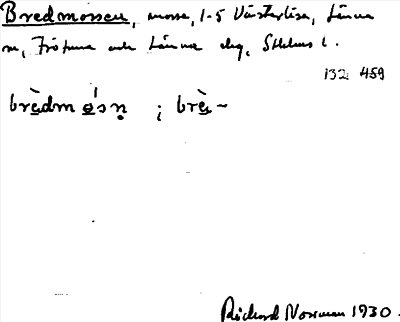 Bredmossen, mosse, 1-5 Västerlisa, Länna
sn, Frötuna och Länna skg, Sthlms l.
132: 459
brèdmósn ; brè-
Richard Norrman 1930.